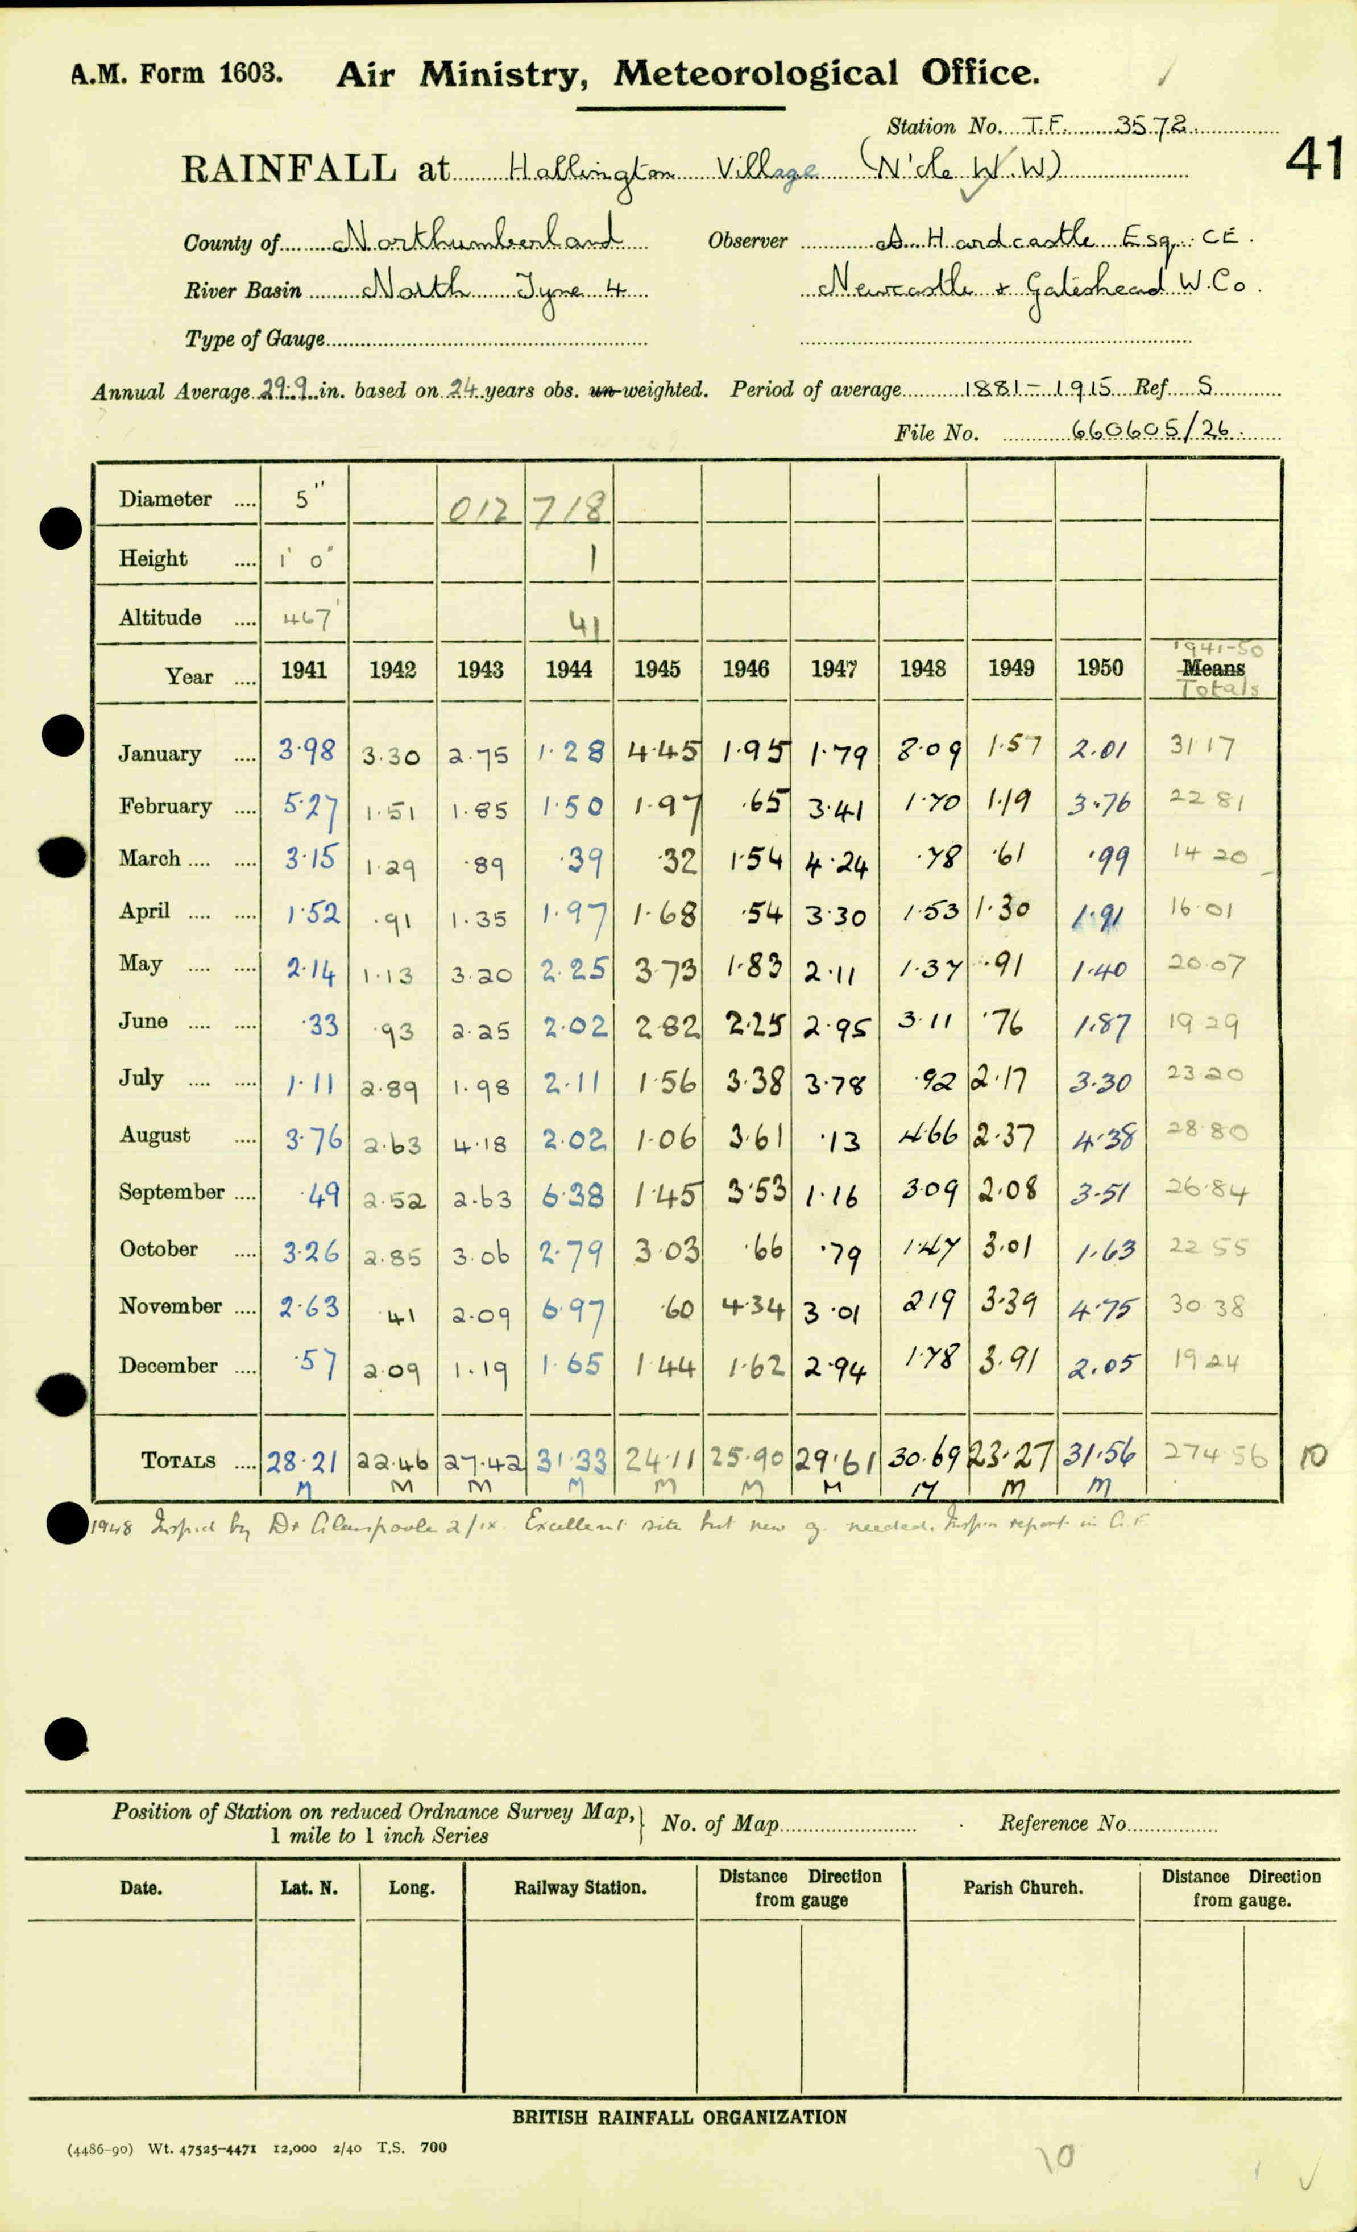 A.M. Form 1603. Air Ministry, Meteorological Office.
Station No. T.F. 3572
41
RAINFALL at Hallington Village (N'cle W.W)
County of Northumberland Observer A. Hardcastle Esq. C.E.
River Basin North Tyne 4 Newcastle & Gateshead W. Co.
Type of Gauge
Annual Average 29.9 in. based on 24 years obs. un-weighted. Period of average 1881-1915 Ref. S
File No. 660605/26
Diameter .... 5" 012 718
Height .... 1' 0" 1
Altitude .... 467' 41
1941-50
Year .... 1941 1942 1943 1944 1945 1946 1947 1948 1949 1950 Means
Totals
January .... 3.98 3.30 2.75 1.28 4.45 1.95 1.79 8.09 1.57 2.01 31 17
February .... 5.27 1.51 1.85 1.50 1.97 .65 3.41 1.70 1.19 3.76 22 81
March .... .... 3.15 1.29 .89 .39 .32 1.54 4.24 .78 .61 .99 14 20
April .... .... 1.52 .91 1.35 1.97 1.68 .54 3.30 1.53 1.30 1.91 16.01
May .... .... 2.14 1.13 3.20 2.25 3.73 1.83 2.11 1.37 .91 1.40 20.07
June .... .... .33 .93 2.25 2.02 2.82 2.25 2.95 3.11 .76 1.87 19 29
July .... .... 1.11 2.89 1.98 2.11 1.56 3.38 3.78 .92 2.17 3.30 23 20
August .... 3.76 2.63 4.18 2.02 1.06 3.61 .13 4.66 2.37 4.38 28.80
September .... .49 2.52 2.63 6.38 1.45 3.53 1.16 3.09 2.08 3.51 26.84
October .... 3.26 2.85 3.06 2.79 3.03 .66 .79 1.47 3.01 1.63 22 55
November .... 2.63 .41 2.09 6.97 .60 4.34 3.01 2.19 3.39 4.75 30.38
December .... .57 2.09 1.19 1.65 1.44 1.62 2.94 1.78 3.91 2.05 19 24
TOTALS .... 28.21 22.46 27.42 31.33 24.11 25.90 29.61 30.69 23.27 31.56 274 56 10
M M M M M M M M M M
1948 Inspd by Dr Glasspoole 2/ix. Excellent site but new g. needed. Inspn report in C.F.
Position of Station on reduced Ordnance Survey Map,
1 mile to 1 inch Series
No. of Map Reference No.
Date. Lat. N. Long. Railway Station. Distance Direction from gauge Parish Church. Distance Direction from gauge.
BRITISH RAINFALL ORGANIZATION
(4486-90) Wt. 47525-4471 12,000 2/40 T.S. 700
10